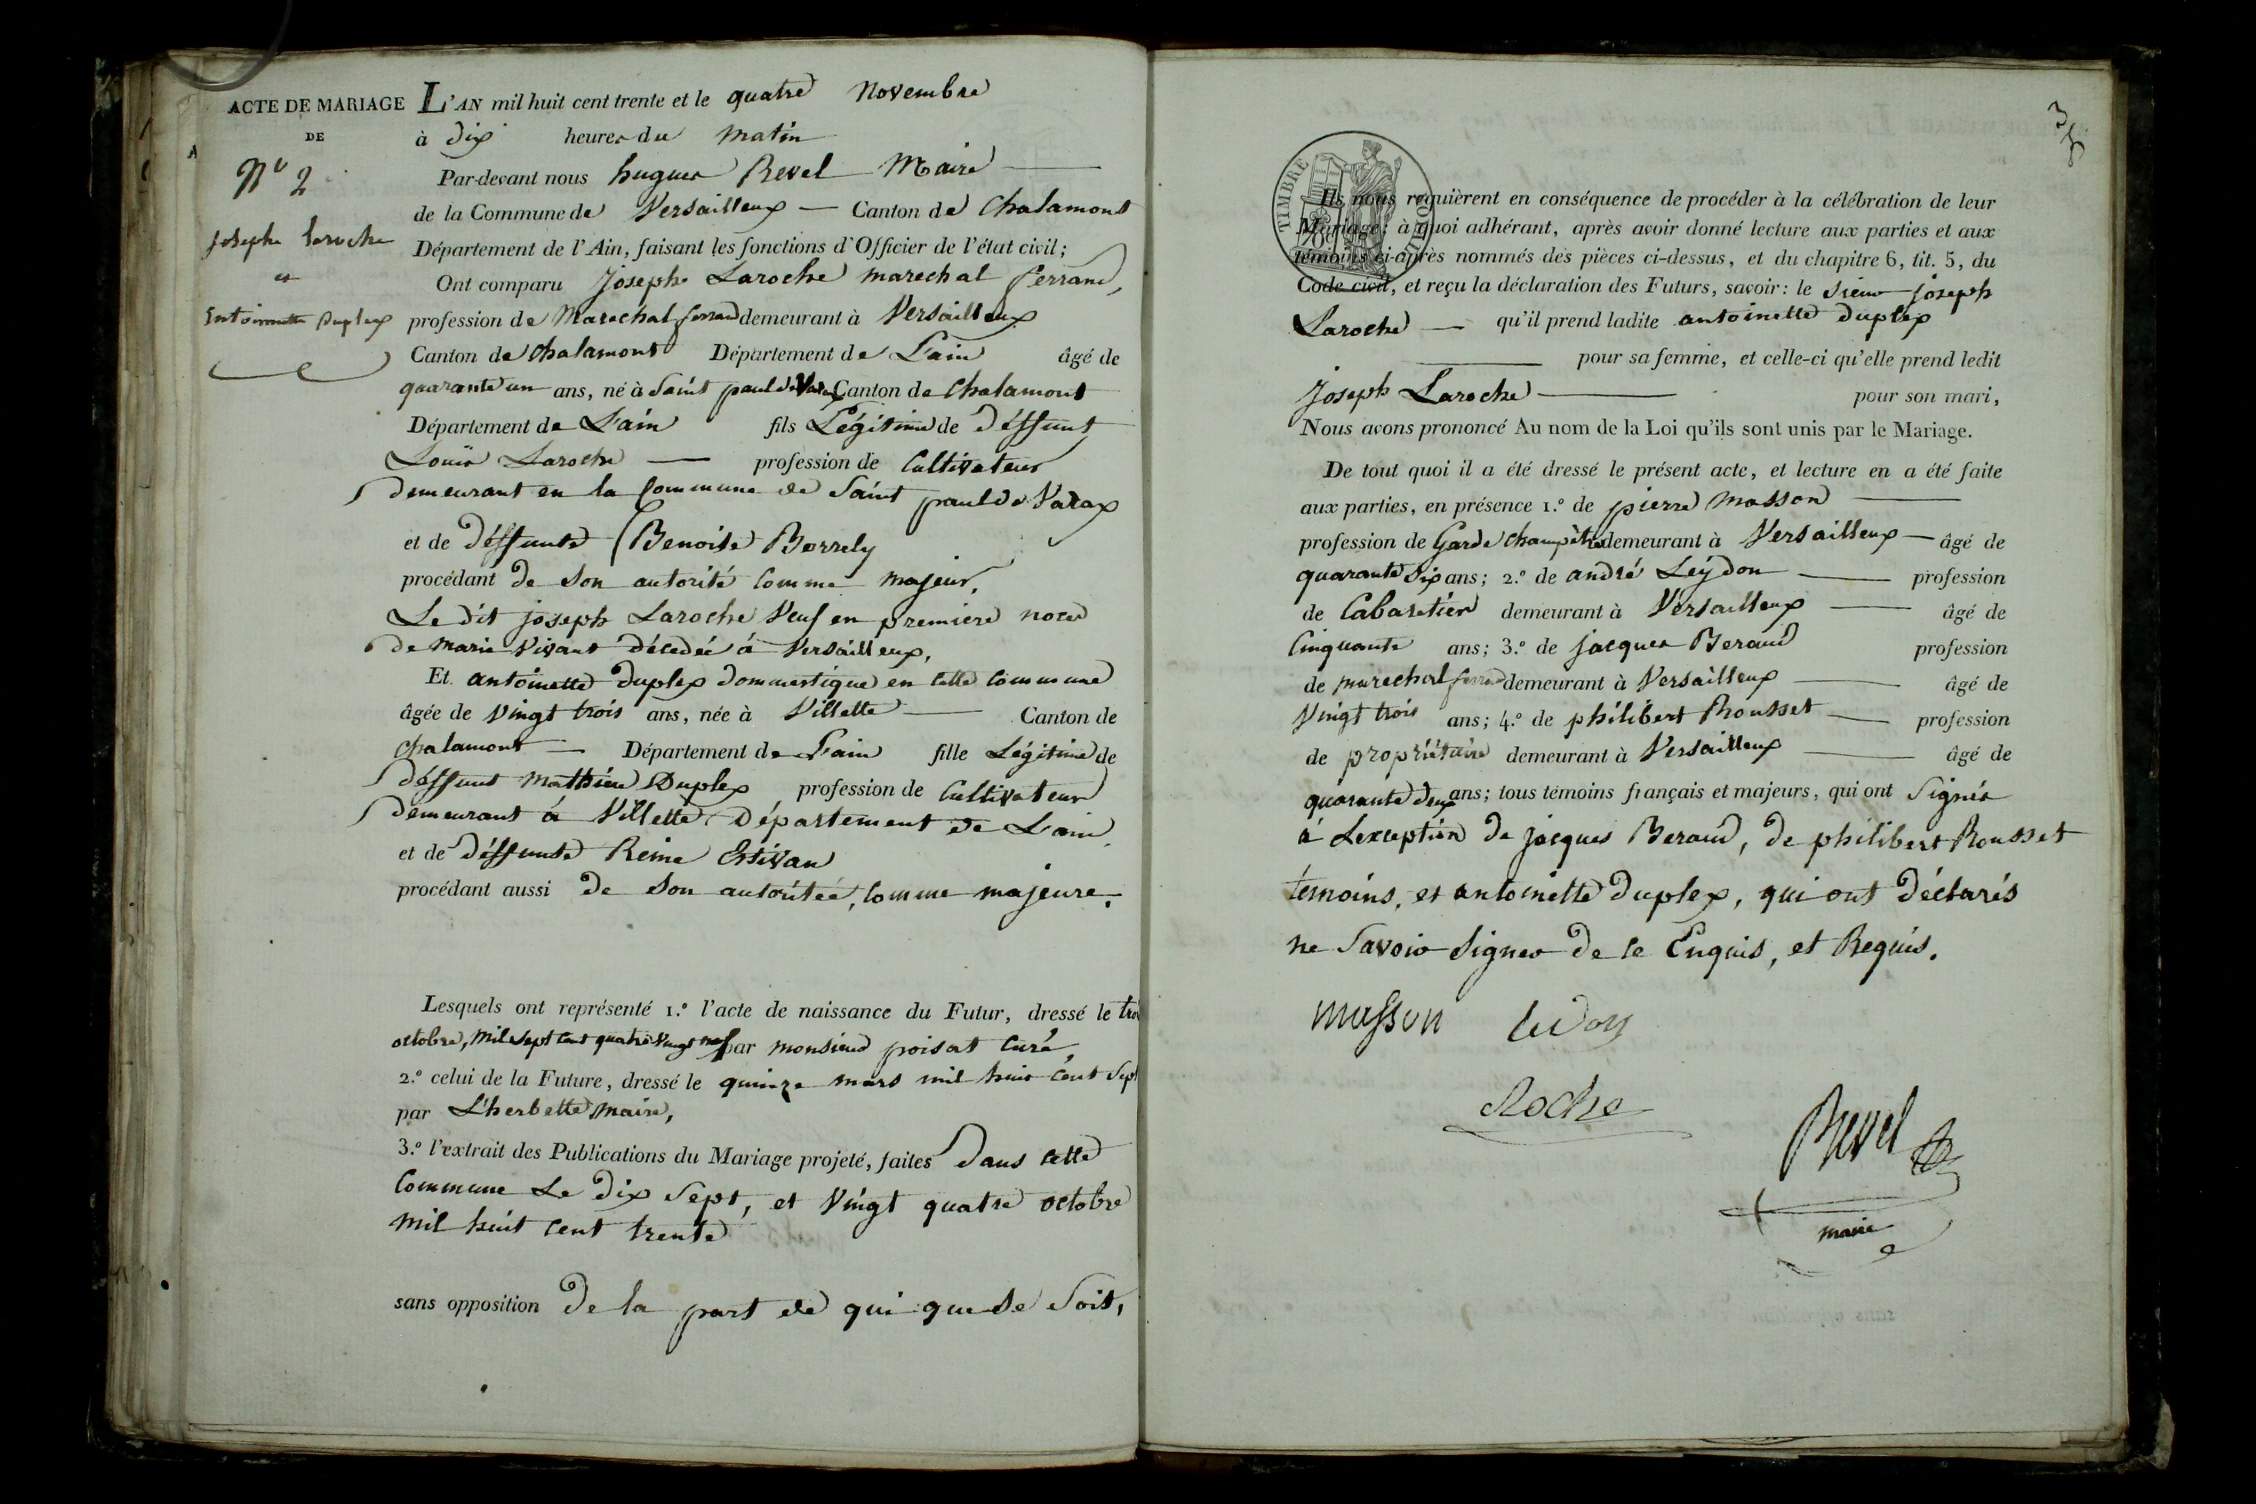 ACTE DE MARIAGE
DE
N° 2
joseph laroche
et
Entoinette Duplex
L'AN mil huit cent trente et le quatre Novembre
à dix heures du matin
Par-devant nous hugues Revel Maire
de la Commune de Versailleux — Canton de Chalamont
Département de l'Ain, faisant les fonctions d'Officier de l'état civil;
Ont comparu Joseph Laroche marechal ferrand,
profession de Marechal ferrand demeurant à Versailleux
Canton de chalamont Département de L'ain âgé de
quarante un ans, né à Saint paul de Varax Canton de Chalamont
Département de L'ain fils Légitime de déffunt
Louis Laroche — profession de Cultivateur
demeurant en la Commune de Saint paul de Varax
et de déffunte Benoite Borrely
procédant de son autorité comme majeur,
Le dit joseph Laroche Veuf en premiere noce
de marie Vivant décedée à Versailleux,
Et antoinette duplex dommestique en cette commune
âgée de Vingt trois ans, née à Villette — Canton de
chalamont — Département de L'ain fille Légitime de
déffunt Mathieu Duplex profession de Cultivateur
demeurant à Villette, Département de L'ain,
et de déffunte Reine Estivan
procédant aussi de son autoritée, comme majeure.
Lesquels ont représenté 1.° l'acte de naissance du Futur, dressé le
octobre, mil sept cent quatre vingt neuf par monsieur poisat curé,
2.° celui de la Future, dressé le quinze mars mil huit cent sept
par L'herbette maire,
3.° l'extrait des Publications du Mariage projeté, faites dans cette
commune Le dix sept, et vingt quatre octobre
mil huit cent trente
sans opposition de la part de qui que se soit,
TIMBRE ROYAL
Ils nous requièrent en conséquence de procéder à la célébration de leur
Mariage; à quoi adhérant, après avoir donné lecture aux parties et aux
témoins ci-après nommés des pièces ci-dessus, et du chapitre 6, tit. 5, du
Code civil, et reçu la déclaration des Futurs, savoir: le sieur joseph
Laroche — qu'il prend ladite antoinette duplex
pour sa femme, et celle-ci qu'elle prend ledit
Joseph Laroche — pour son mari,
Nous avons prononcé Au nom de la Loi qu'ils sont unis par le Mariage.
De tout quoi il a été dressé le présent acte, et lecture en a été faite
aux parties, en présence 1.° de pierre Masson
profession de Garde champêtre demeurant à Versailleux — âgé de
quarante six ans; 2.° de andré Leydon — profession
de Cabaretier demeurant à Versailleux — âgé de
Cinquante ans; 3.° de jacques Beraud profession
de marechal ferrand demeurant à Versailleux — âgé de
Vingt trois ans; 4.° de philibert Rousset — profession
de propriétaire demeurant à Versailleux — âgé de
quarante deux ans; tous témoins français et majeurs, qui ont signés
à Lexception de jacques Beraud, de philibert Rousset
temoins, et antoinette duplex, qui ont déclarés
ne savoir signer de ce Enquis, et Requis.
masson ledon
Roche
Revel
maire